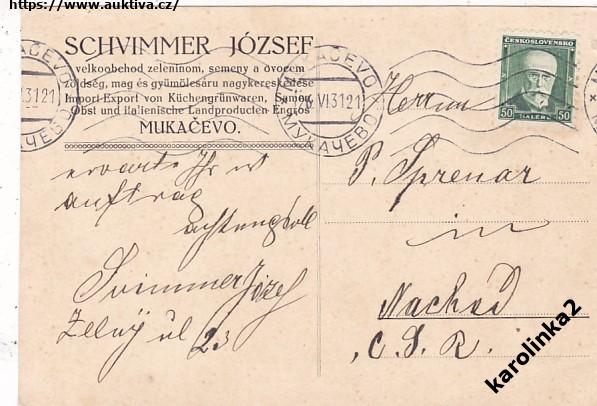 https://www.auktiva.cz/
SCHVIMMER JÓZSEF
velkoobchod zeleninom, semeny a ovocem
zöldség, mag és gyümölcsáru nagykereskedése
Import-Export von Küchengrünwaren, Samen,
Obst und italienische Landproducten Engros
MUKAČEVO.
MUKAČEVO
VI.31 21
МУКАЧЕВО
ČESKOSLOVENSKO
50 HALÉŘŮ 50
Herrn
P. Sprenar
in
Nachod
Č. S. R.
erwarte Ihr w
auftrag
achtungsvoll
Svimmer József
Zelný ul 23
karolinka2